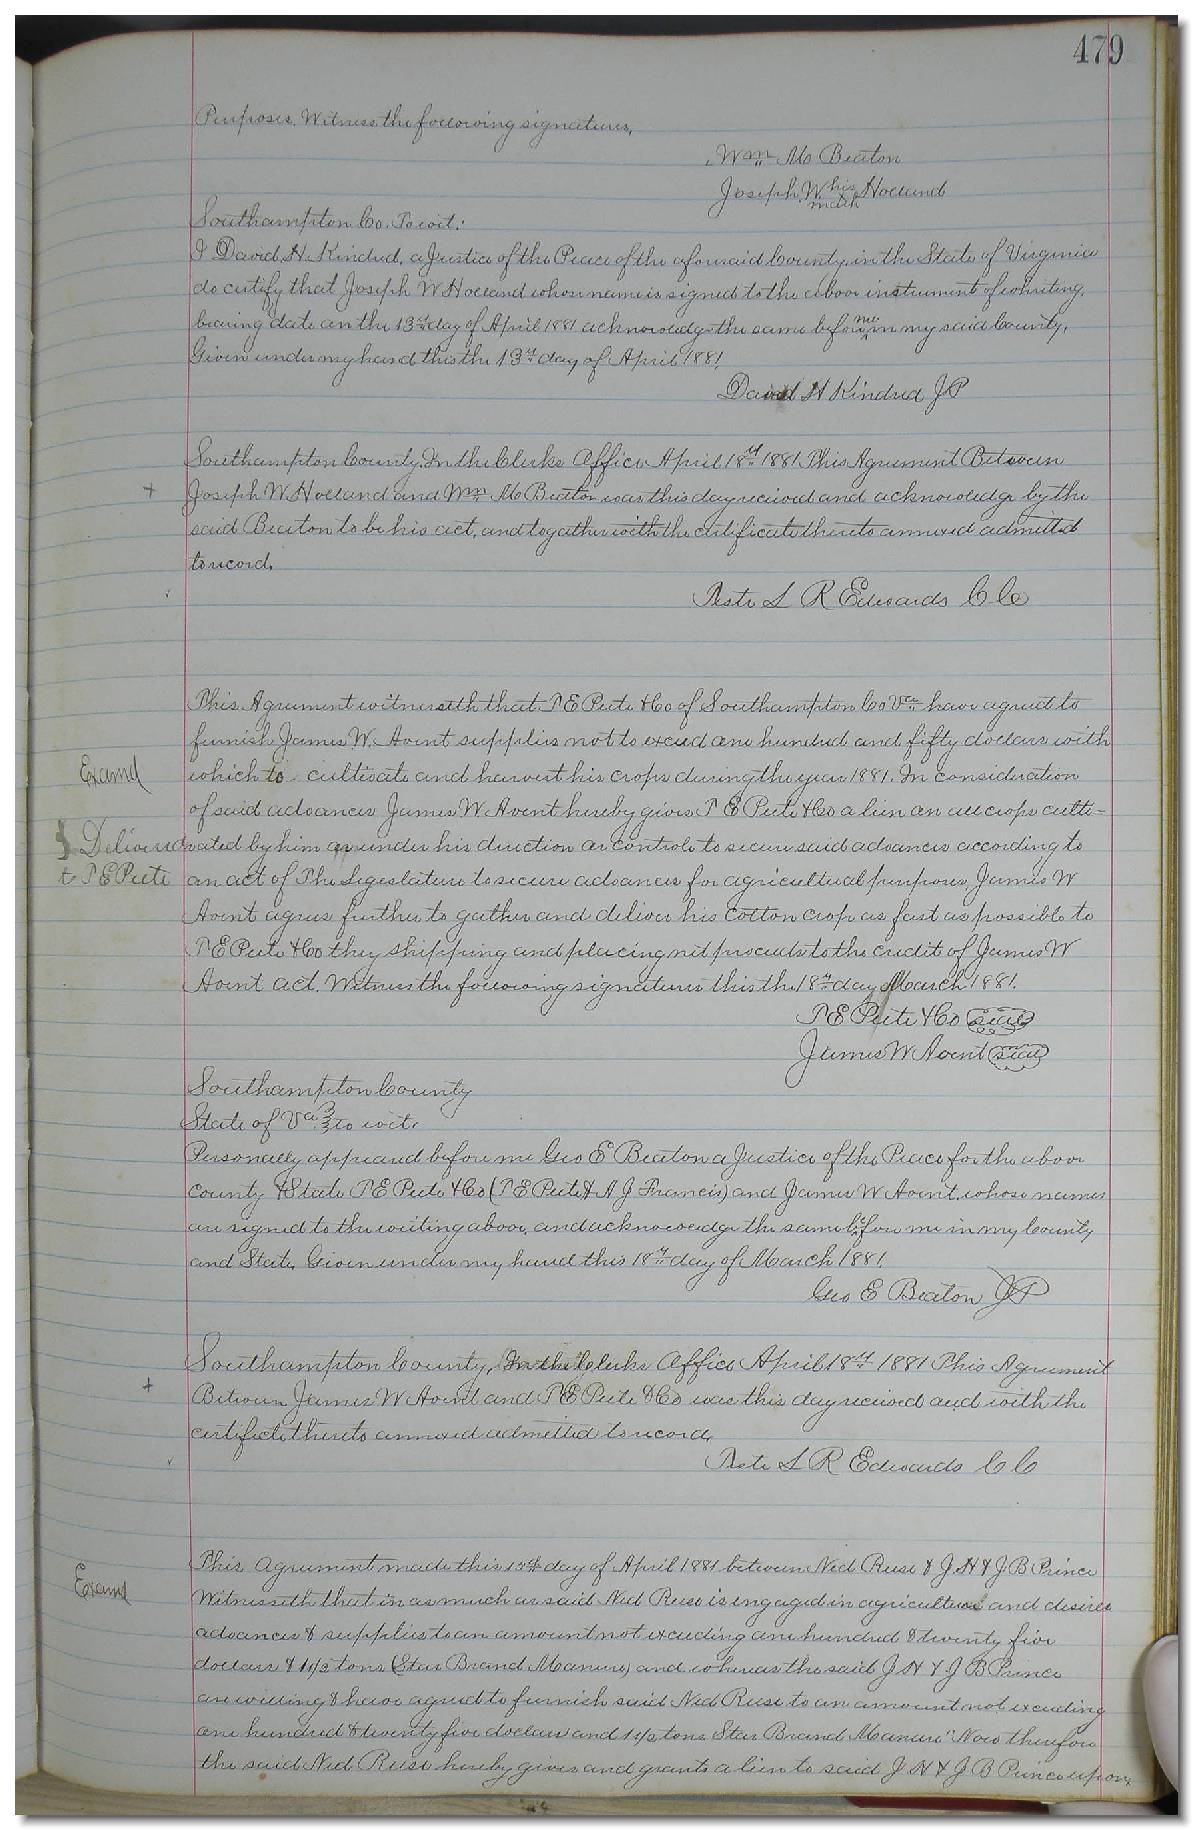 479
Purposes. Witness the following signatures,
Wm Mc Beaton
Joseph W his Holland
mark
Southampton Co. To wit:
I David H. Kindred, a Justice of the Peace of the aforesaid County, in the State of Virginia
do certify that Joseph W Holland whose name is signed to the above instrument of writing,
bearing date on the 13th day of April 1881 acknowledge the same before me in my said County,
Given under my hand this the 13th day of April 1881
David H Kindred JP
Southampton County, In the Clerks Office April 18th 1881 This Agreement Between
+ Joseph W. Holland and Wm Mc Beaton was this day received and acknowledge by the
said Beaton to be his act, and together with the certificate thereto annexed admitted
to record,
Teste L R Edwards C C
This Agreement witnesseth that T E Peete & Co of Southampton Co Va have agreed to
furnish James W. Avent supplies not to exceed one hundred and fifty dollars with
Examd which to cultivate and harvest his crops during the year 1881. In consideration
of said advances James W Avent hereby gives T E Peete & Co a lien on all crops culti-
Delivered vated by him or under his direction or controle to secure said advances according to
to T E Peete an act of The Legeslature to secure advances for agricultural purposes, James W
Avent agrees further to gather and deliver his cotton crop as fast as possible to
T E Peete & Co they shipping and placing net proceeds to the credit of James W
Avent act. Witness the following signatures this the 18th day March 1881.
T E Peete & Co seal
James W Avent seal
Southampton County
State of Va. to wit.
Personally appeared before me Geo E Beaton a Justice of the Peace for the above
county & State T E Peete & Co (T E Peete & A J Francis) and James W Avent, whose names
are signed to the writing above, and acknowledge the same before me in my County
and State, Given under my hand this 18th day of March 1881,
Geo E Beaton JP
Southampton County, In the Clerks Office April 18th 1881 This Agreement
+ Between James W Avent and T E Peete & Co was this day received and with the
certificate thereto annexed admitted to record,
Teste L R Edwards C C
This Agreement made this day of April 1881 between Ned Reese & J H & J B Prince
Examd Witnesseth that in as much as said Ned Reese is engaged in agriculture and desires
advances & supplies to an amount not exceeding one hundred & twenty five
dollars & 1 1/2 tons (Star Brand Manure) and whereas the said J H & J B Prince
are willing & have agreed to furnish said Ned Reese to an amount not exceeding
one hundred & twenty five dollars and 1 1/2 tons Star Brand Manure" Now therefore
the said Ned Reese hereby gives and grants a lien to said J H & J B Prince upon,